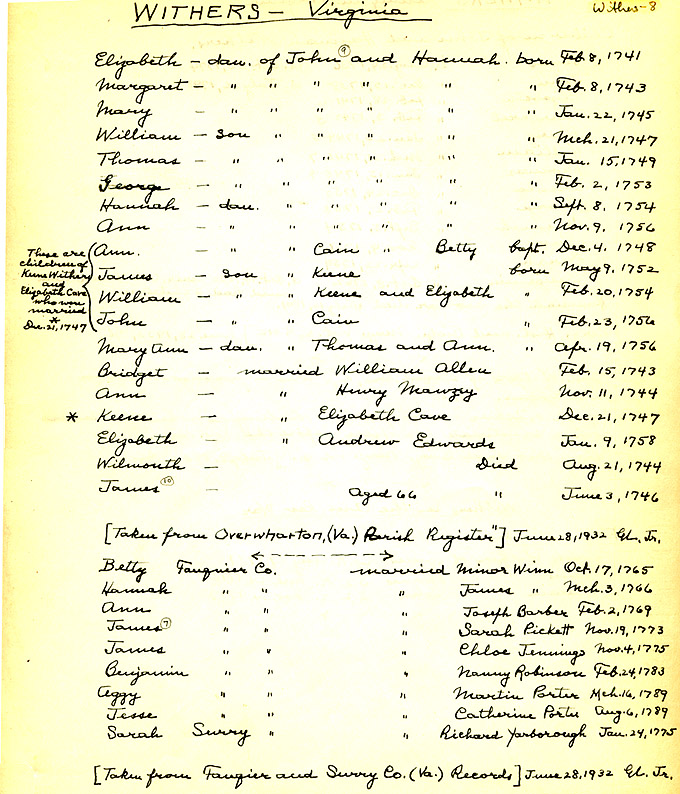 WITHERS - Virginia
Withes-8
Elizabeth - dau. of John ⑨ and Hannah. born Feb. 8, 1741
Margaret - " " " " " " Feb. 8, 1743
Mary - " " " " " " Jan. 22, 1745
William - son " " " " " Mch. 21, 1747
Thomas - " " " " " " Jan. 15, 1749
George - " " " " " " Feb. 2, 1753
Hannah - dau. " " " " " Sept. 8, 1754
Ann - " " " " " " Nov. 9, 1756
Ann. - " " Cain " Betty bapt. Dec. 4, 1748
James - son " Keene born May 9, 1752
William - " " Keene and Elizabeth " Feb. 20, 1754
John - " " Cain " Feb. 23, 1756
These are
children of
Keene Withers
and
Elizabeth Cave
who were
married
*
Dec. 21, 1747
Mary Ann - dau. " Thomas and Ann. " Apr. 19, 1756
Bridget - married William Allen Feb. 15, 1743
Ann - " Henry Mawzey Nov. 11, 1744
* Keene - " Elizabeth Cave Dec. 21, 1747
Elizabeth - " Andrew Edwards Jan. 9, 1758
Wilmouth - Died Aug. 21, 1744
James ⑩ - Aged 66 " June 3, 1746
[Taken from Overwharton, (Va.) Parish Register"] June 28, 1932 GL. Jr.
Betty Fauquier Co. married Minor Winn Oct. 17, 1765
Hannah " " " James " Mch. 3, 1766
Ann " " " Joseph Barber Feb. 2, 1769
James ⑦ " " " Sarah Pickett Nov. 19, 1773
James " " " Chloe Jennings Nov. 4, 1775
Benjamin " " " Nanny Robinson Feb. 24, 1783
Aggy " " " Martin Porter Mch. 16, 1789
Jesse " " " Catherine Porter Aug. 6, 1789
Sarah Surry " " Richard Yarborough Jan. 24, 1775
[Taken from Fauqier and Surry Co. (Va.) Records] June 28, 1932 GL. Jr.